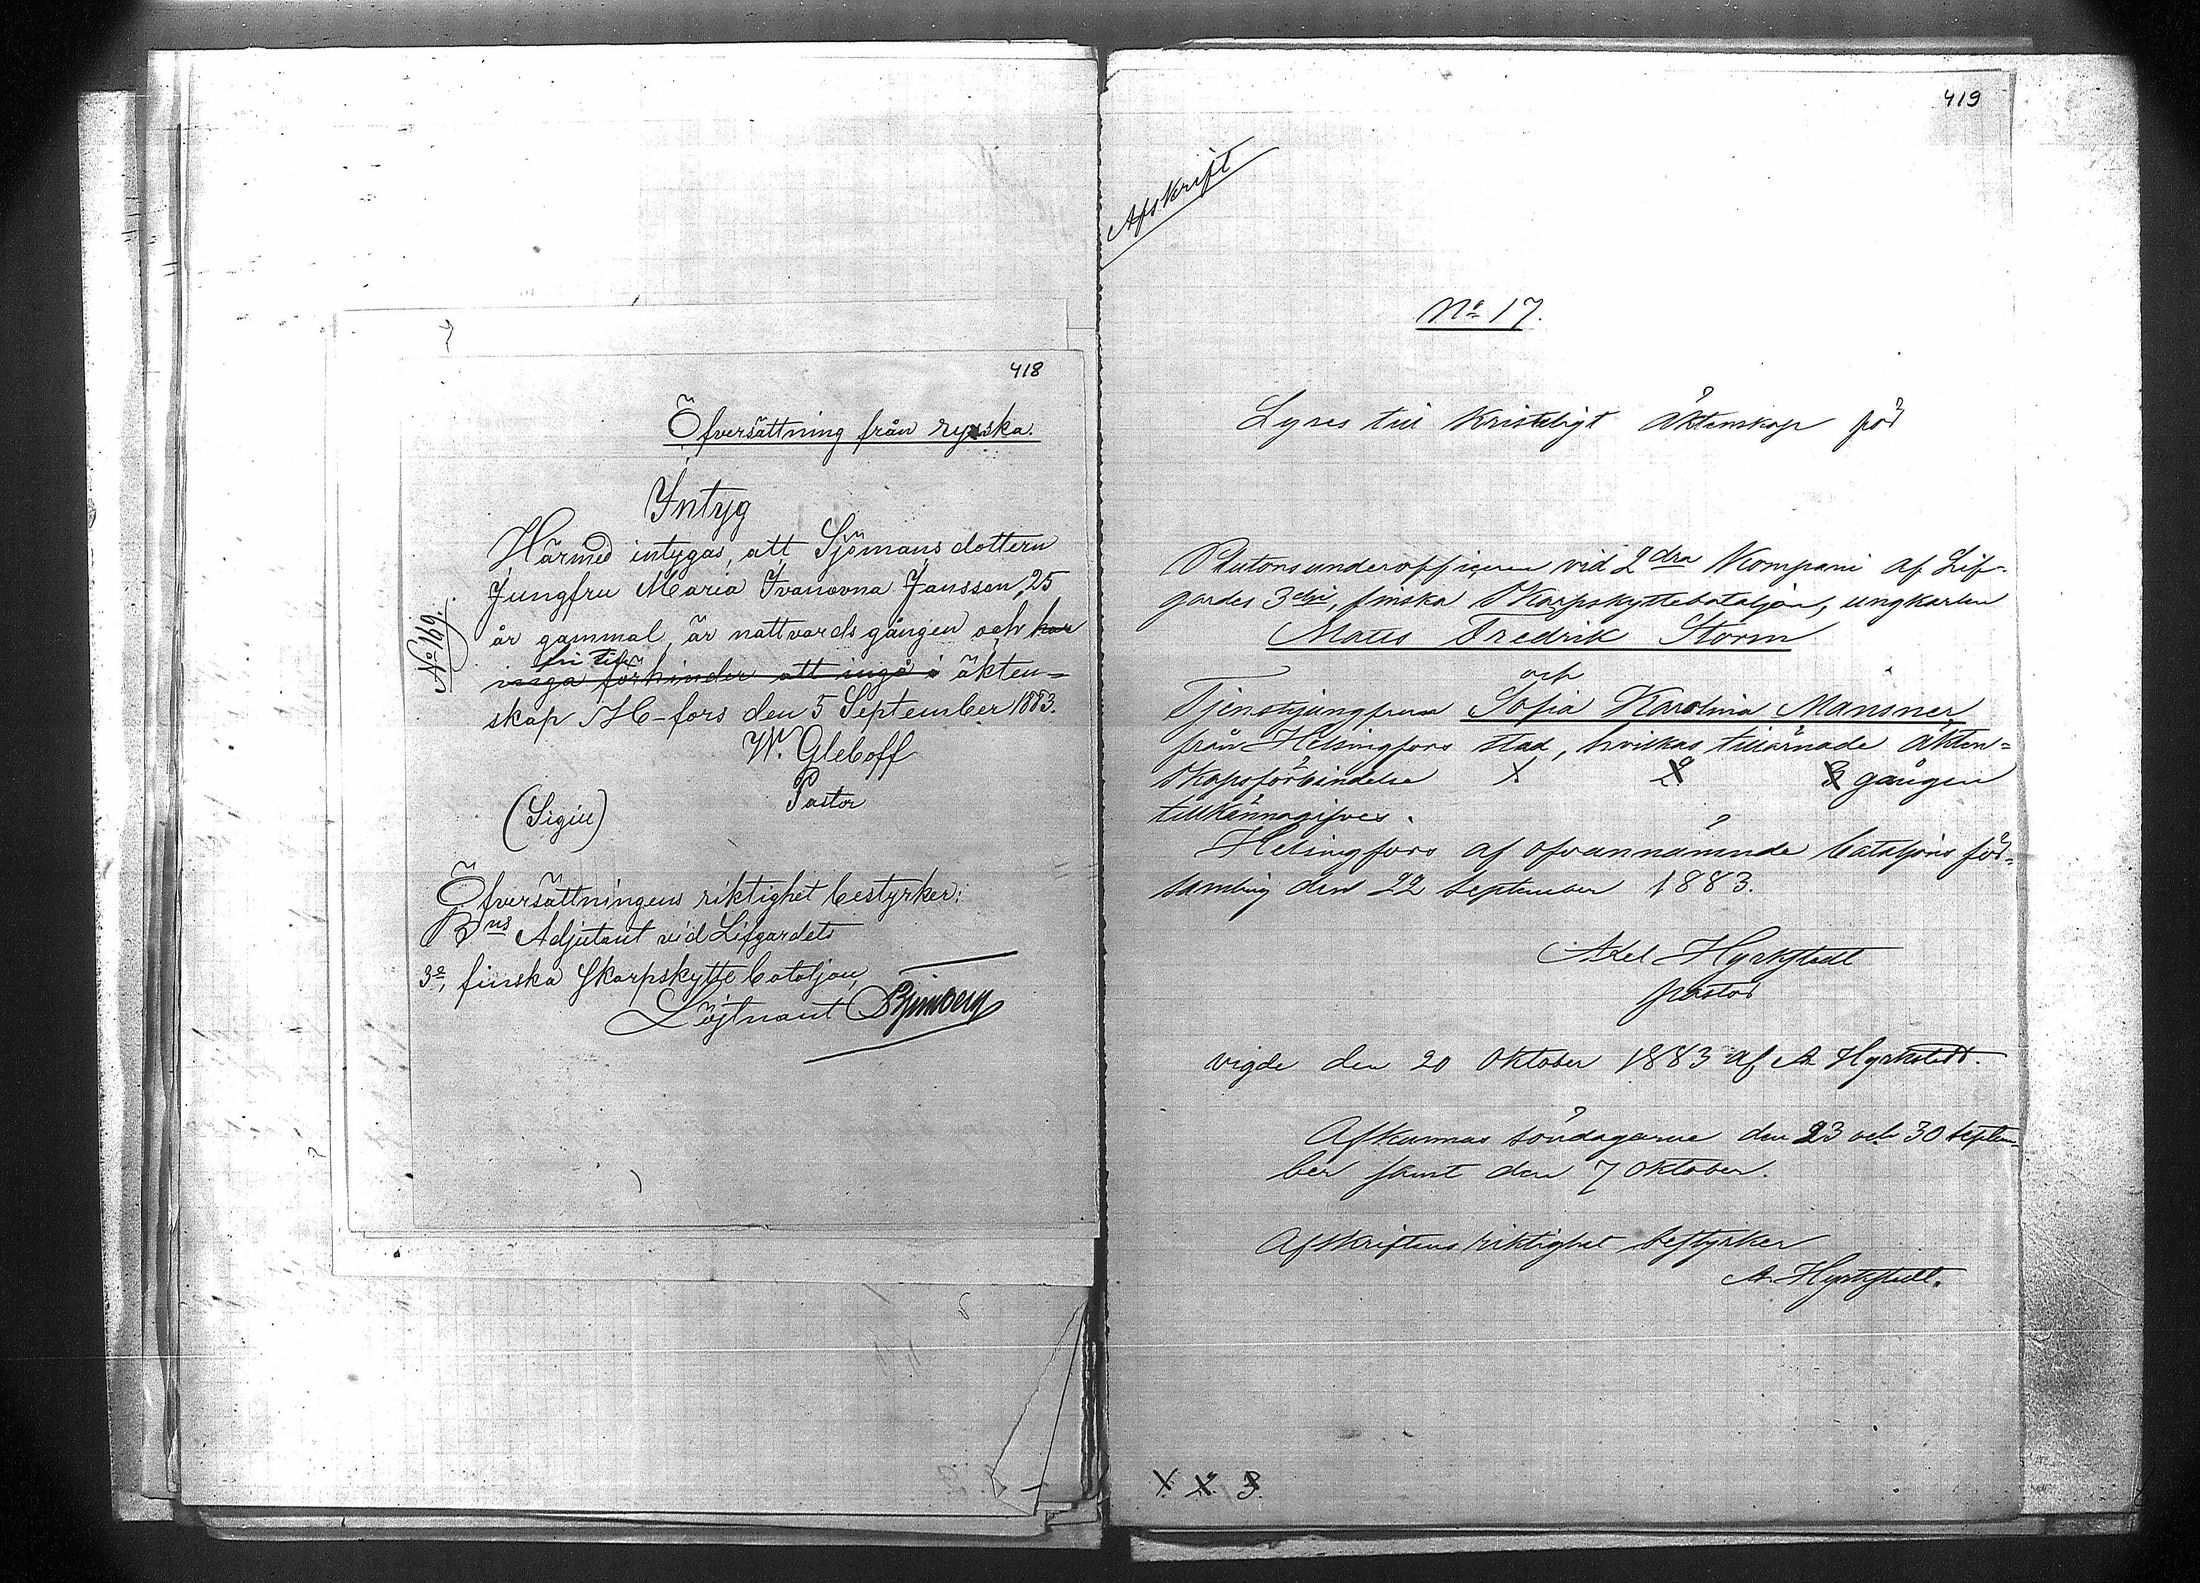 418
Öfversättning från ryska.
Intyg
Härmed intygas, att Sjömansdottern
Jungfru Maria Ivanovna Jansson, 25
år gammal, är nattvardsgången och har
fri till
inga förhinder att ingå i äkten=
skap H-fors den 5 September 1883.
W. Gleboff
Pastor
(Sigill)
No 169.
Öfversättningens riktighet bestyrker:
Adjutant vid Lifgardets
3e, finska Skarpskyttebataljon,
Löjtnant
419
Afskrift
No 17.
Lyses till kristeligt äktenskap för
Plutonsunderofficeren vid 2dra Kompani af Lif-
gardes 3dje, finska Skarpskyttebataljon, ungkarlen
Matts Fredrik Storm
och
Tjenstejungfrun Sofia Karolina Månsner
från Helsingfors stad, hvilkas tillärnade äkten=
skapsförbindelse X X 3 gången
tillkännagifves.
Helsingfors af ofvannämnde bataljons för=
samling den 22 September 1883.
Axel Hyrkstedt
pastor
Vigde den 20 Oktober 1883 af A Hyrkstedt.
Afkunnas söndagarne den 23 och 30 Septem-
ber samt den 7 Oktober.
Afskriftens riktighet bestyrker
A. Hyrkstedt.
X X 3